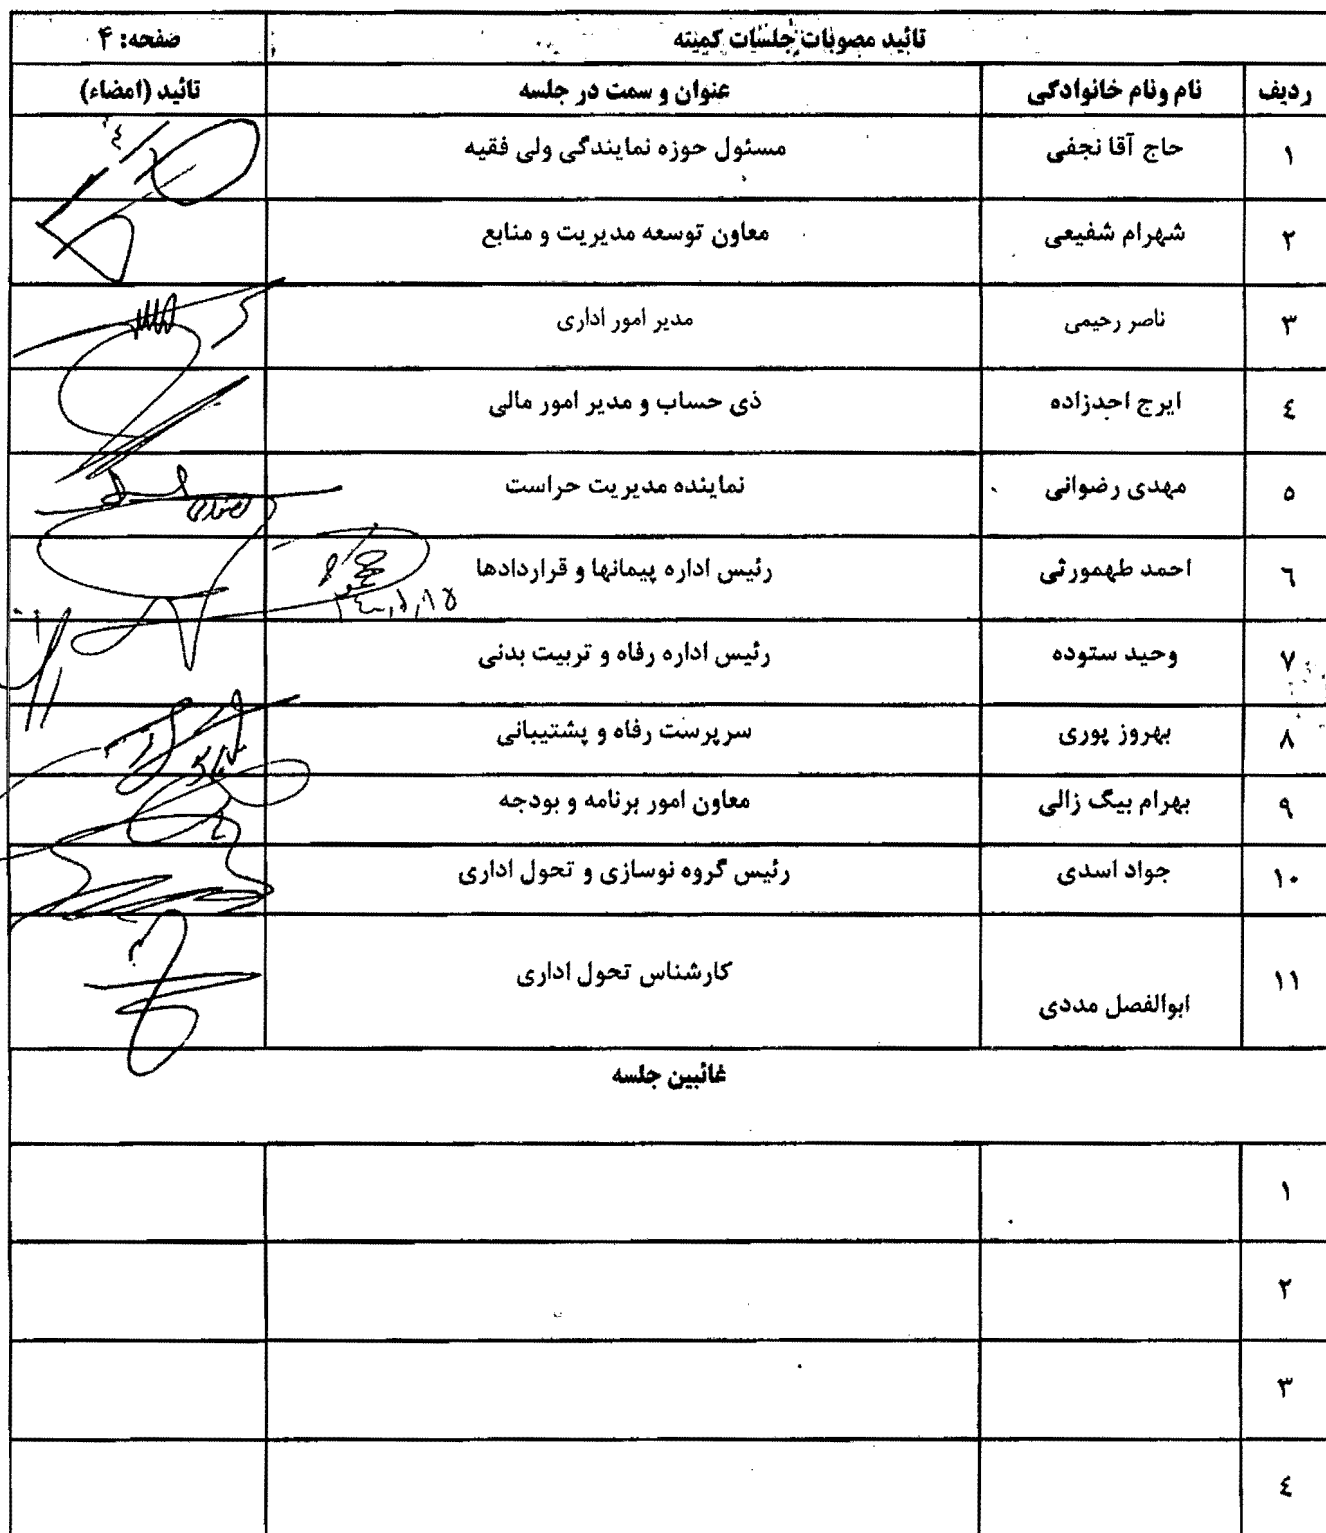 تائید مصوبات جلسات کمیته صفحه: ۴
ردیف نام ونام خانوادگی عنوان و سمت در جلسه تائید (امضاء)
۱ حاج آقا نجفی مسئول حوزه نمایندگی ولی فقیه
۲ شهرام شفیعی معاون توسعه مدیریت و منابع
۳ ناصر رحیمی مدیر امور اداری
٤ ایرج احدزاده ذی حساب و مدیر امور مالی
٥ مهدی رضوانی نماینده مدیریت حراست
٦ احمد طهمورثی رئیس اداره پیمانها و قراردادها
۷ وحید ستوده رئیس اداره رفاه و تربیت بدنی
۸ بهروز پوری سرپرست رفاه و پشتیبانی
۹ بهرام بیگ زالی معاون امور برنامه و بودجه
۱۰ جواد اسدی رئیس گروه نوسازی و تحول اداری
۱۱ ابوالفصل مددی کارشناس تحول اداری
غائبین جلسه
۱
۲
۳
٤